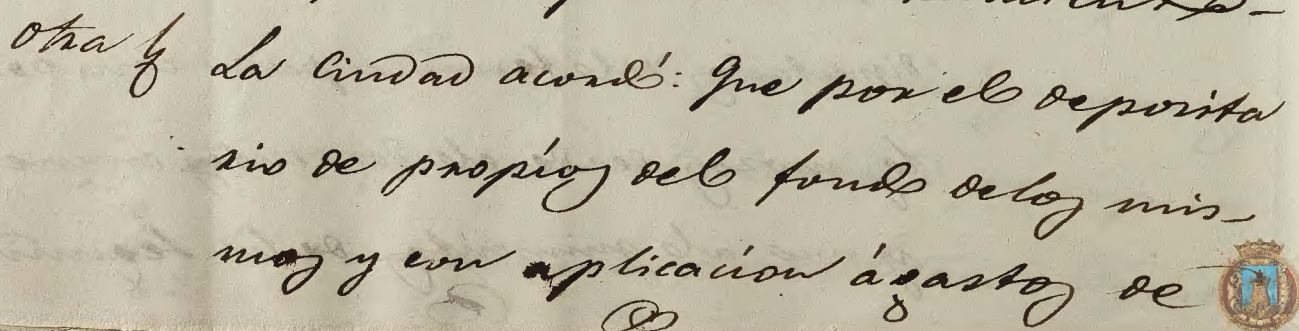 otra
La Ciudad acordó: Que por el deposita
rio de propios del fondo delos mis-
mos y con aplicacion ágastos de